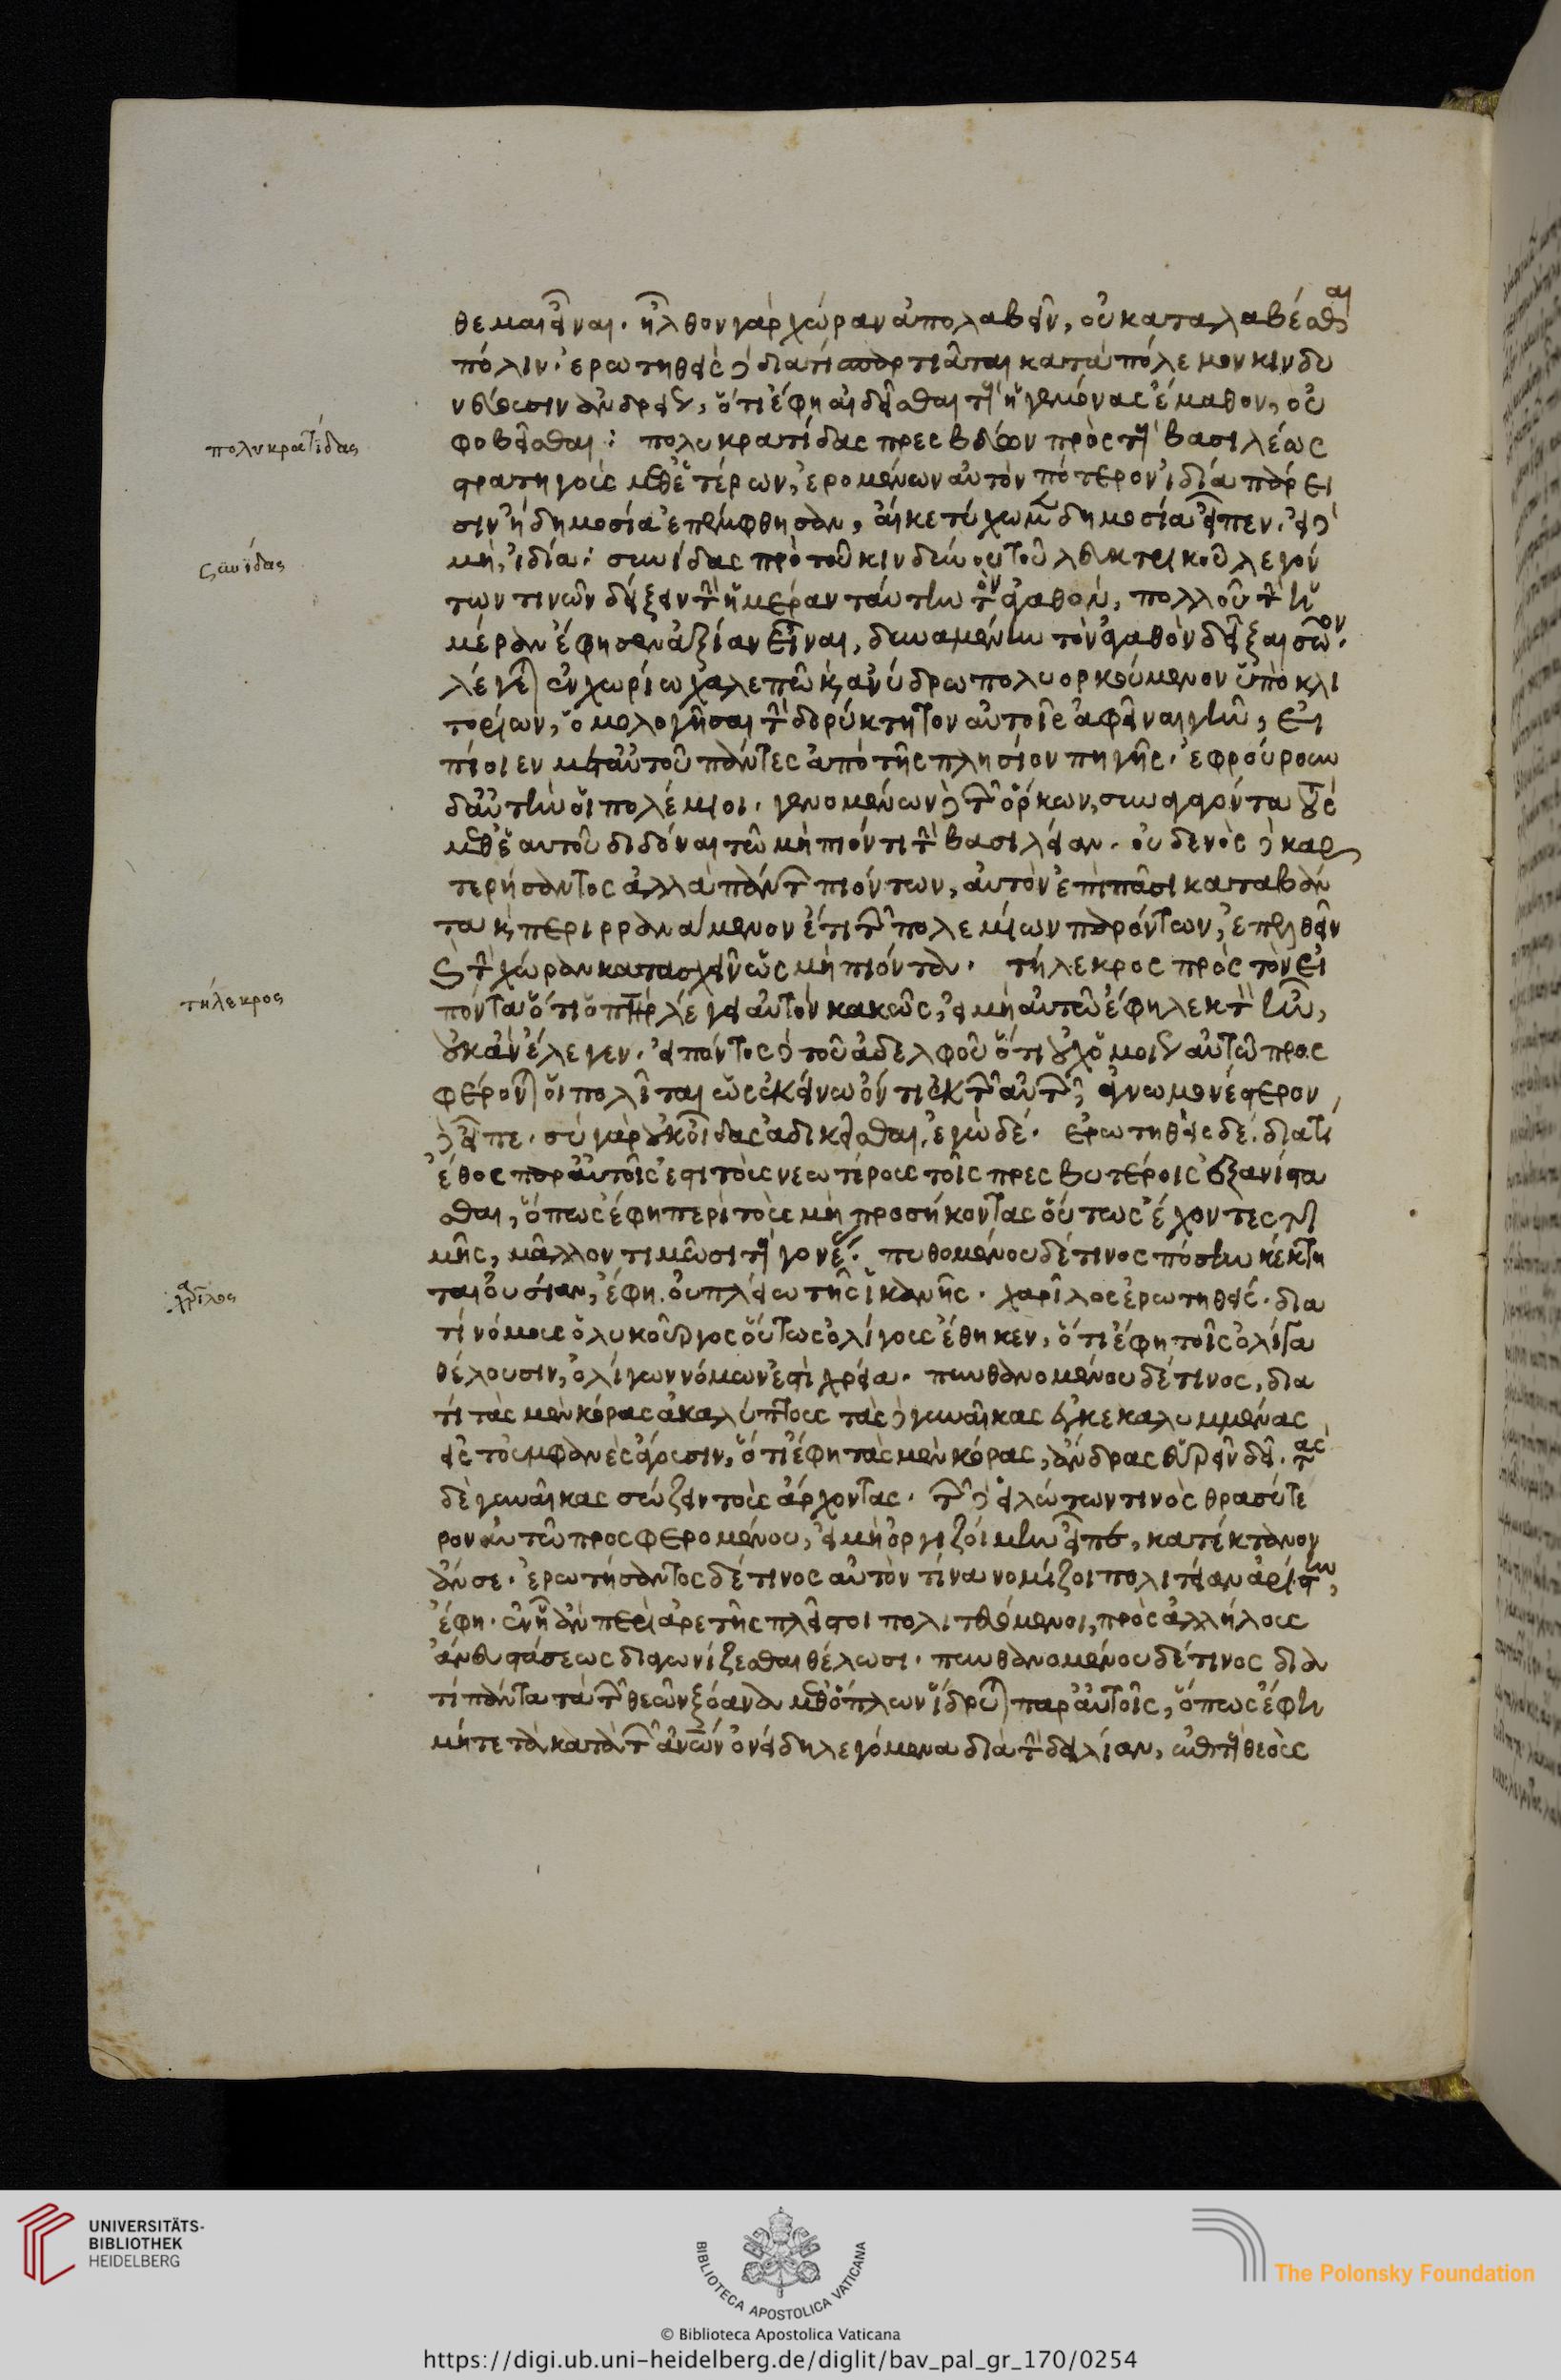 θεμαι εἶναι. ἦλθον γὰρ χώραν ἀπολαβεῖν, οὐ καταλαβέσθαι
πόλιν. ἐρωτηθεὶς δὲ διατί σπαρτιᾶται κατὰ πόλεμον κινδυ
νεύουσιν ἀνδρείως, ὅτι ἔφη αἰδεῖσθαι τοὺς ἡγεμόνας ἔμαθον, οὐ
φοβεῖσθαι: πολυκρατίδας πρεσβεύων πρὸς τοὺς βασιλέως
στρατηγοὺς μεθ' ἑτέρων, ἐρομένων αὐτὸν πότερον ἰδία πάρει
σιν ἢ δημοσία ἐπέμφθησαν, αἴκε τύχωμεν δημοσία εἶπεν. εἰ δὲ
μὴ, ἰδία: σωίδας πρὸ τοῦ κινδύνου τοῦ λευκτρικοῦ λεγόν
των τινῶν δείξειν τὴν ἡμέραν ταύτην τὸν ἀγαθόν, πολλοῦ τὴν ἡ
μέραν ἔφησεν ἀξίαν εἶναι, δυναμένην τὸν ἀγαθὸν δεῖξαι σῶον.
λέγεται ἐν χωρίω χαλεπῶ καὶ ἀνύδρω πολυορκούμενον ὑπὸ κλι
τορίων, ὁμολογῆσαι τὴν δορύκτητον αὐτοῖς ἀφεῖναι γῆν, εἰ
πίοιεν μετ' αὐτοῦ πάντες ἀπὸ τῆς πλησίον πηγῆς. ἐφρούρουν
δ' αὐτὴν οἱ πολέμιοι. γενομένων δὲ τῶν ὅρκων, συναγαγόντα τοὺς
μεθ' ἑαυτοῦ διδόναι τῶ μὴ πιόντι τὴν βασιλείαν. οὐδενὸς δὲ καρ
τερήσαντος ἀλλὰ πάντων πιόντων, αὐτὸν ἐπὶ πᾶσι καταβάν
τα καὶ περιρρανάμενον ἔτι τῶν πολεμίων παρόντων, ἐπελθεῖν
καὶ τὴν χώραν κατασχεῖν ὡς μὴ πιόντα. τήλεκρος πρὸς τὸν εἰ
πόντα ὅτι ὁ πατὴρ λέγει αὐτὸν κακῶς, εἰ μὴ αὐτῶ ἔφη λεκτέον ἦν,
οὐκ ἂν ἔλεγεν. εἰπόντος δὲ τοῦ ἀδελφοῦ ὅτι οὐχ ὁμοίως αὐτῶ προς
φέρονται οἱ πολῖται ὡς ἐκείνω ὄντι ἐκ τῶν αὐτῶν, ἀγνωμονέστερον
δὲ εἶπε. σὺ γὰρ οὐκ οἶδας ἀδικεῖσθαι, ἐγὼ δέ. ἐρωτηθεὶς δὲ. διατί
ἔθος παρ' αὐτοῖς ἐστι τοὺς νεωτέρους τοῖς πρεσβυτέροις ἐξανίστα
σθαι, ὅπως ἔφη περὶ τοὺς μὴ προσήκοντας οὕτως ἔχοντες τι
μῆς, μᾶλλον τιμῶσι τοὺς γονεῖς. πυθομένου δέ τινος πόσην κέκτη
ται οὐσίαν, ἔφη. οὐ πλείω τῆς ἱκανῆς. χαρίλος ἐρωτηθεὶς. δια
τί νόμους ὁ λυκοῦργος οὕτως ὀλίγους ἔθηκεν, ὅτι ἔφη τοῖς ὀλίγα
θέλουσιν, ὀλίγων νόμων ἐστὶ χρεία. πυνθανομένου δέ τινος, δια
τί τὰς μὲν κόρας ἀκαλύπτους τὰς δὲ γυναῖκας ἐγκεκαλυμμένας
εἰς τοὐμφανὲς ἄγουσιν, ὅτι ἔφη τὰς μὲν κόρας, ἄνδρας εὑρεῖν δεῖ. τὰς
δὲ γυναῖκας σώζειν τοὺς ἔχοντας. τῶν δὲ εἱλώτων τινὸς θρασύτε
ρον αὐτῶ προςφερομένου, εἰ μὴ ὀργιζοίμην εἶπε, κατέκτανον
ἄν σε. ἐρωτήσαντος δέ τινος αὐτὸν τίνα νομίζοι πολιτείαν ἀρίστην,
ἔφη. ἐν ᾗ ἂν περὶ ἀρετῆς πλεῖστοι πολιτευόμενοι, πρὸς ἀλλήλους
ἄνευ στάσεως διαγωνίζεσθαι θέλωσι. πυνθανομένου δέ τινος δια
τί πάντα τὰ τῶν θεῶν ξόανα μεθ' ὅπλων ἵδρυται παρ' αὐτοῖς, ὅπως ἔφη
μήτε τὰ κατὰ τῶν ἀνθρώπων ὀνείδη λεγόμενα διὰ τὴν δειλίαν, ἐπὶ τοὺς θεοὺς
πολυκρατίδας
σωίδας
τήλεκρος
χαρίλος
UNIVERSITÄTS-
BIBLIOTHEK
HEIDELBERG
BIBLIOTECA APOSTOLICA VATICANA
The Polonsky Foundation
© Biblioteca Apostolica Vaticana
https://digi.ub.uni-heidelberg.de/diglit/bav_pal_gr_170/0254